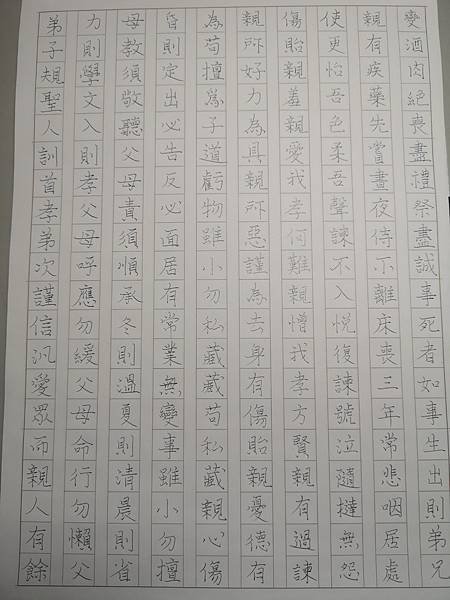 弟子規聖人訓首孝弟次謹信汎愛眾而親人有餘
力則學文入則孝父母呼應勿緩父母命行勿懶父
母教須敬聽父母責須順承冬則溫夏則清晨則省
昏則定出必告反必面居有常業無變事雖小勿擅
為苟擅爲子道虧物雖小勿私藏藏苟私藏親心傷
親所好力為具親所惡謹為去身有傷貽親憂德有
傷貽親羞親愛我孝何難親憎我孝方賢親有過諫
使更怡吾色柔吾聲諫不入悅復諫號泣隨撻無怨
親有疾藥先嘗晝夜侍不離床喪三年常悲咽居處
變酒肉絕喪盡禮祭盡誠事死者如事生出則弟兄